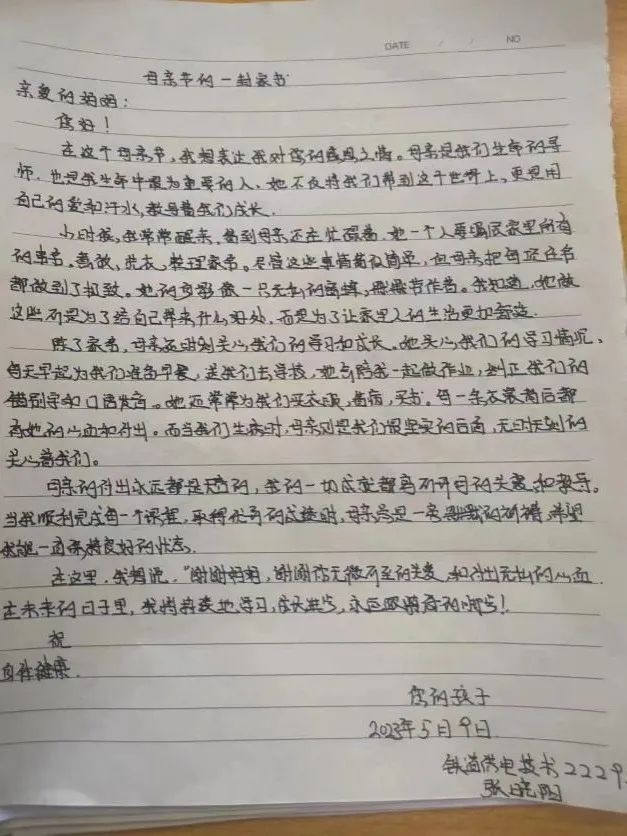 DATE / / NO
母亲节的一封家书
亲爱的妈妈:
您好!
在这个母亲节,我想表达我对您的感恩之情。母亲是我们生命的导
师,也是我生命中最为重要的人、她不仅将我们带到这个世界上,更是用
自己的爱和汗水,教导着我们成长.
小时候,我常常醒来,看到母亲还在忙碌着.她一个人要操持家里所有
的事务,做饭,洗衣,整理家务。尽管这些事情看似简单,但母亲把每项任务
都做到了极致。她的身影像一只无私的蜜蜂,默默劳作着。我知道,她做
这些不是为了给自己带来什么好处,而是为了让家里人的生活更加舒适.
除了家务,母亲还时刻关心我们的学习和成长。她关心我们的学习情况、
每天早起为我们准备早餐,送我们去学校,她会陪我一起做作业,纠正我们的
错别字和口语发音。她还常常为我们买衣服,看病,买书.每一条衣裳背后都
有她的心血和付出。而当我们生病时,母亲则是我们最坚实的后盾,无时无刻的
关心着我们。
母亲的付出永远都是无价的,我的一切成就都离不开母的关爱和教导。
当我顺利完成每一个课程,取得优秀的成绩时,母亲总是一旁默默的祈祷,希望
我能一直保持良好的状态.
在这里,我想说,"谢谢妈妈,谢谢你无微不至的关爱和付出无私的心血.
在未来的日子里,我将持续地学习,成长进步,永远跟随您的脚步!
祝
身体健康.
您的孩子
2023年5月9日
铁道供电技术2229.
张晓阳